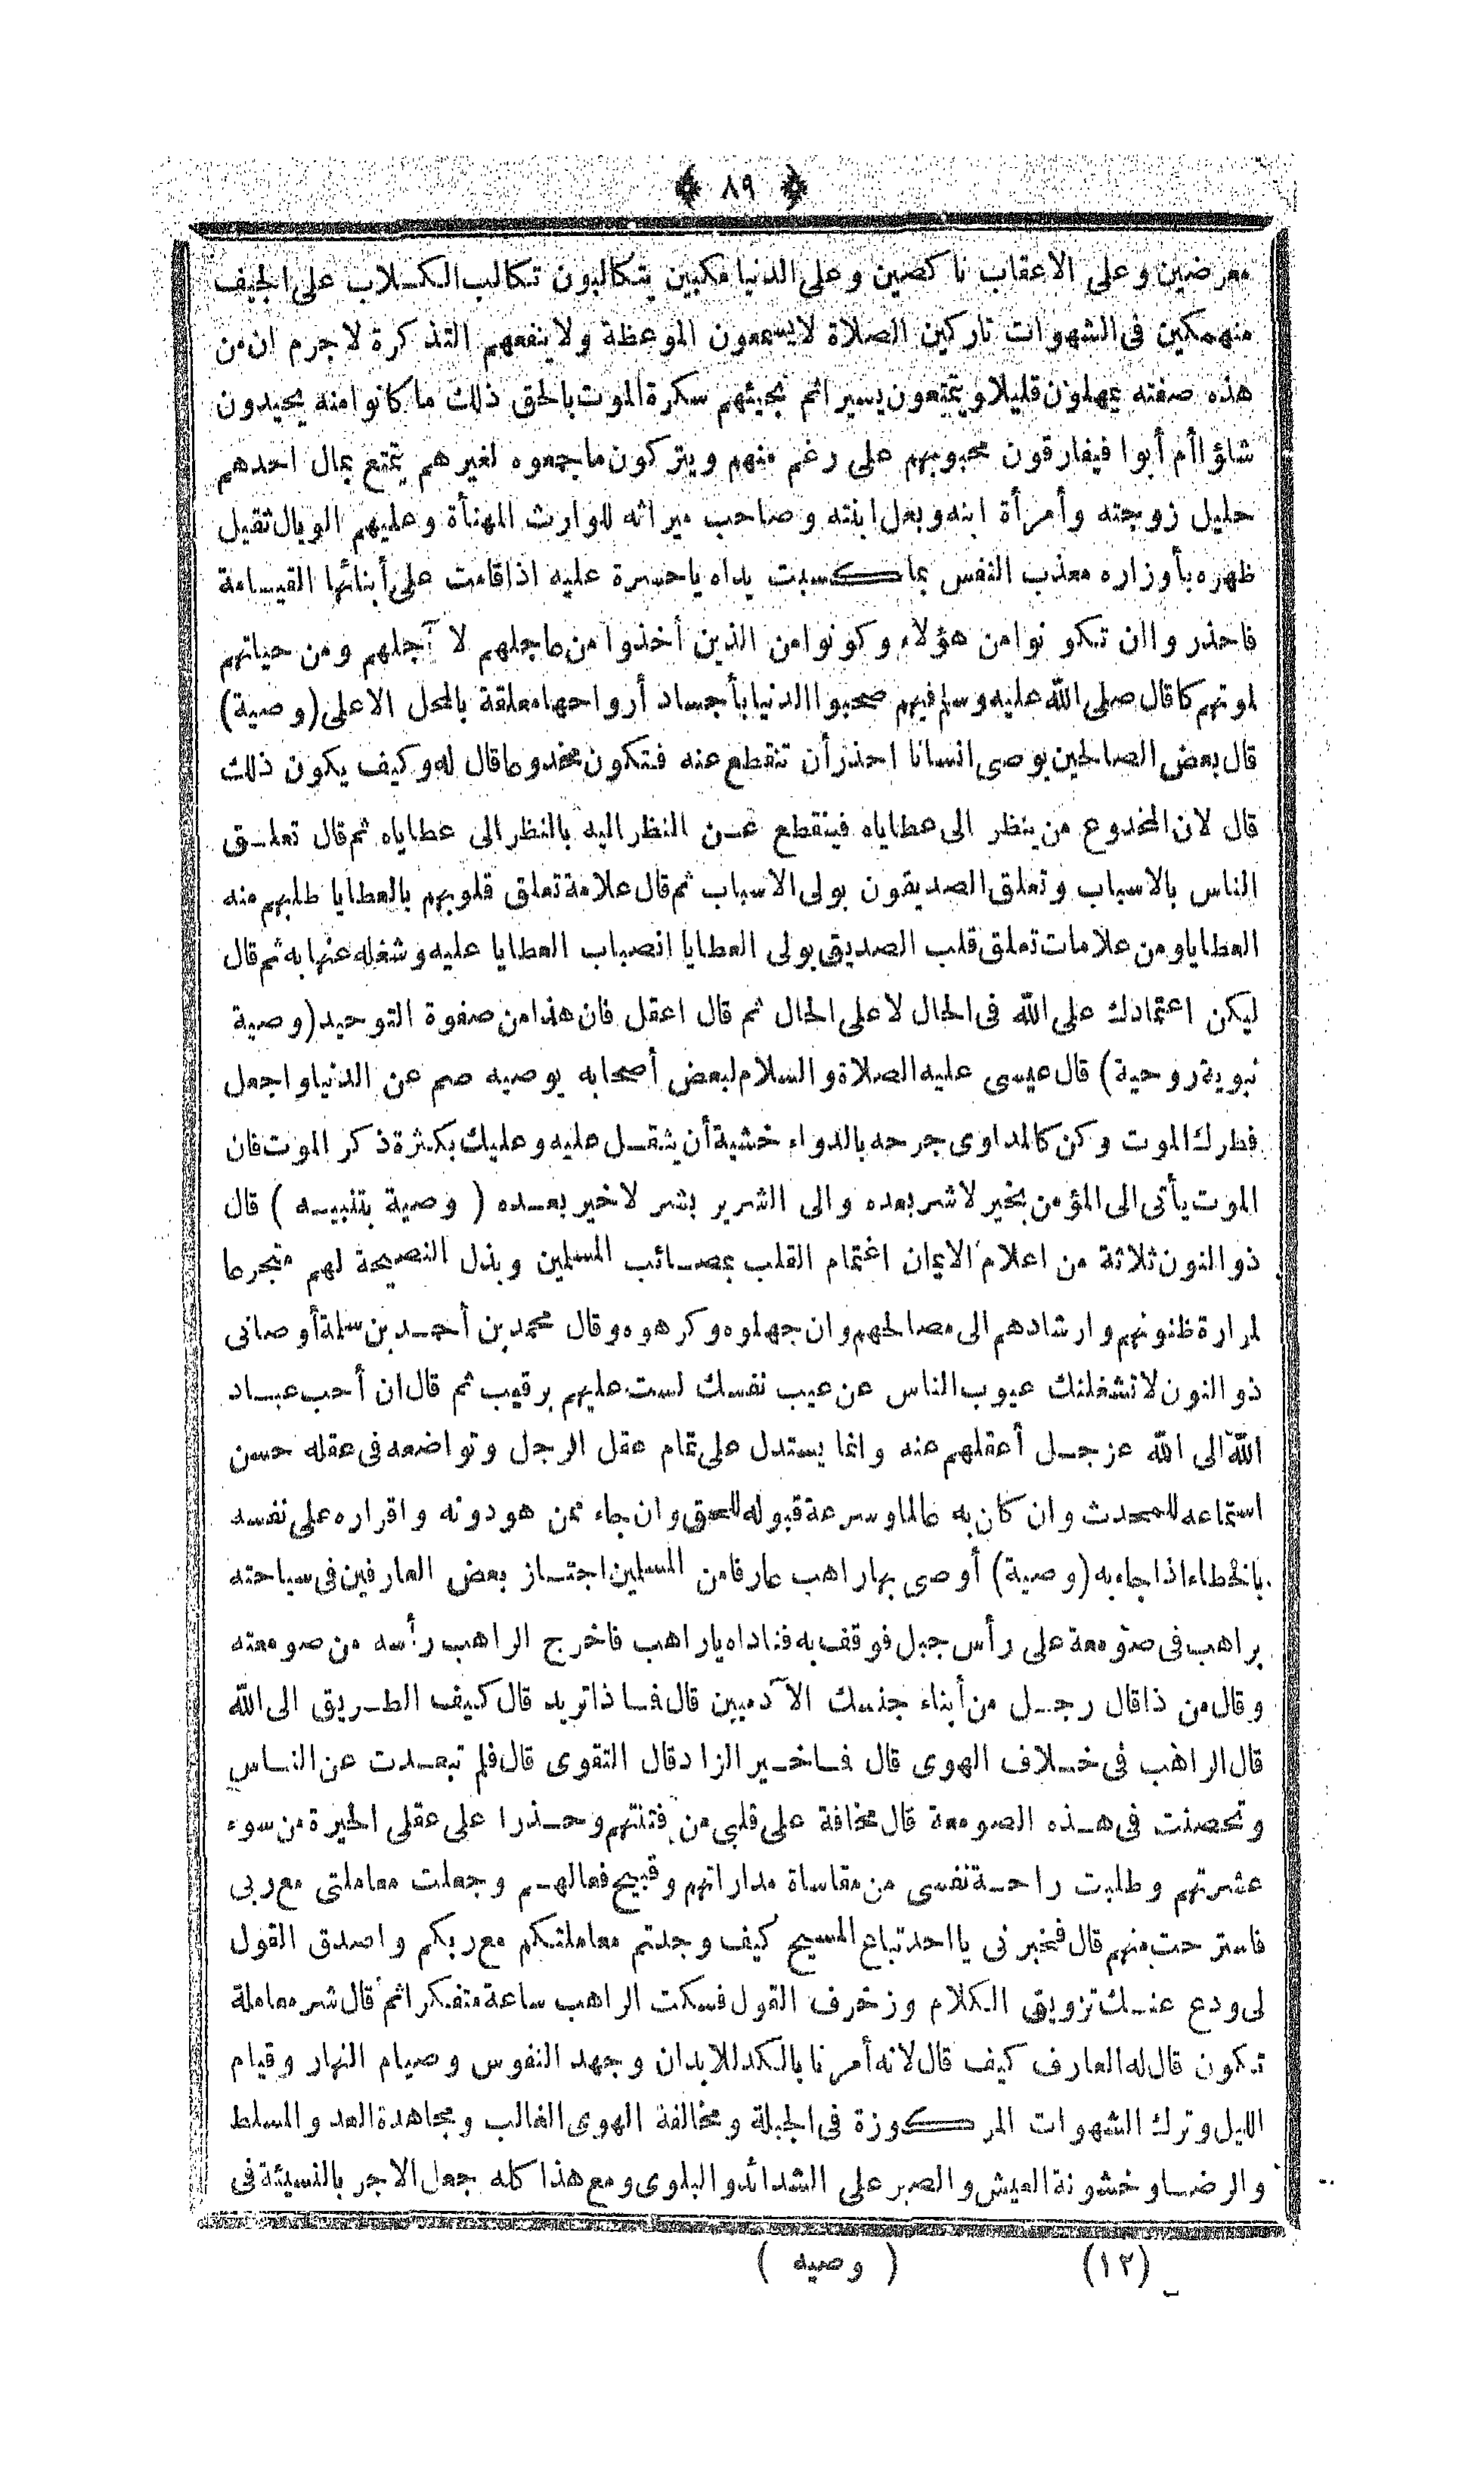 ﴿ ٨٩ ﴾
معرضين وعلى الاعقاب ناكصين وعلى الدنيا مكبين يتكالبون تكالب الكلاب على الجيف
منهمكين فى الشهوات تاركين الصلاة لا يسمعون الموعظة ولا ينفعهم التذكرة لا جرم ان من
هذه صفته يمهلون قليلا ويتمتعون يسيرا ثم تجيئهم سكرة الموت بالحق ذلك ما كانوا منه يحيدون
شاؤا أم أبوا فيفارقون محبوبهم على رغم منهم ويتركون ما جمعوه لغيرهم يتمتع بمال احدهم
حليل زوجته وأمرأة ابنه وبعل ابنته وصاحب ميراثه للوارث المهنأة وعليهم الوبال ثقيل
ظهره بأوزاره معذب النفس بما كسبت يداه يا حسرة عليه اذا قامت على أبنائها القيامة
فاحذروا ان تكونوا من هؤلاء وكونوا من الذين أخذوا من عاجلهم لا آجلهم ومن حياتهم
لموتهم كما قال صلى الله عليه وسلم فيهم صحبوا الدنيا بأجساد أرواحها معلقة بالمحل الاعلى (وصية)
قال بعض الصالحين يوصى انسانا احذر أن تنقطع عنه فتكون مخدوعا قال له وكيف يكون ذلك
قال لان المخدوع من ينظر الى عطاياه فينقطع عن النظر اليه بالنظر الى عطاياه ثم قال تعلق
الناس بالاسباب وتعلق الصديقون بولى الاسباب ثم قال علامة تعلق قلوبهم بالعطايا طلبهم منه
العطايا ومن علامات تعلق قلب الصديق بولى العطايا انصباب العطايا عليه وشغله عنها به ثم قال
ليكن اعتمادك على الله فى الحال لا على الحال ثم قال اعقل فان هذا من صفوة التوحيد (وصية
نبوية روحية) قال عيسى عليه الصلاة والسلام لبعض أصحابه يوصيه صم عن الدنيا واجعل
فطرك الموت وكن كالمداوى جرحه بالدواء خشية أن يثقل عليه وعليك بكثرة ذكر الموت فان
الموت يأتى الى المؤمن بخير لا شر بعده والى الشرير بشر لا خير بعده ( وصية بتنبيه ) قال
ذو النون ثلاثة من اعلام الايمان اغتمام القلب بمصائب المسلمين وبذل النصيحة لهم متجرعا
لمرارة ظنونهم وارشادهم الى مصالحهم وان جهلوه وكرهوه وقال محمد بن أحمد بن سلمة أوصانى
ذو النون لا تشغلنك عيوب الناس عن عيب نفسك لست عليهم برقيب ثم قال ان أحب عباد
الله الى الله عز جل أعقلهم عنه وانما يستدل على تمام عقل الرجل وتواضعه فى عقله حسن
استماعه للمحدث وان كان به عالما وسرعة قبوله للحق وان جاء ممن هو دونه واقراره على نفسه
بالخطاء اذا جاء به (وصية) أوصى بها راهب عارفا من المسلمين اجتاز بعض العارفين فى سياحته
براهب فى صومعة على رأس جبل فوقف به فناداه يا راهب فاخرج الراهب رأسه من صومعته
وقال من ذا قال رجل من أبناء جنسك الآدميين قال فما ذا تريد قال كيف الطريق الى الله
قال الراهب فى خلاف الهوى قال فما خير الزاد قال التقوى قال فلم تبعدت عن الناس
وتحصنت فى هذه الصومعة قال مخافة على قلبى من فتنتهم وحذرا على عقلى الحيرة من سوء
عشرتهم وطلبت راحة نفسى من مقاساة مداراتهم وقبيح فعالهم وجعلت معاملتى مع ربى
فاسترحت منهم قال فخبرنى يا احد تباع المسيح كيف وجدتم معاملتكم مع ربكم واصدق القول
لى ودع عنك تزويق الكلام وزخرف القول فسكت الراهب ساعة متفكرا ثم قال شر معاملة
تكون قال له العارف كيف قال لانه أمرنا بالكد للابدان وجهد النفوس وصيام النهار وقيام
الليل وترك الشهوات المركوزة فى الجبلة ومخالفة الهوى الغالب ومجاهدة العدو المسلط
والرضا وخشونة العيش والصبر على الشدائد والبلوى ومع هذا كله جعل الاجر بالنسيئة فى
(١٢) ( وصيه )